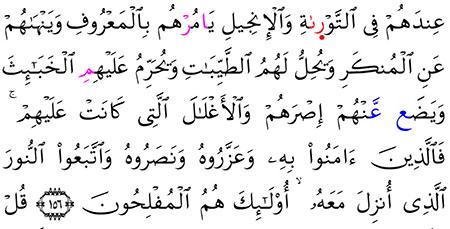 عِندَهُمْ فِى ٱلتَّوْرِىٰةِ وَٱلْإِنجِيلِ يَامُرْهُم بِٱلْمَعْرُوفِ وَيَنْهَىٰهُمْ
عَنِ ٱلْمُنكَرِ وَيُحِلُّ لَهُمُ ٱلطَّيِّبَٰتِ وَيُحَرِّمُ عَلَيْهِمِ ٱلْخَبَٰٓئِثَ
وَيَضَع عَّنْهُمْ إِصْرَهُمْ وَٱلْأَغْلَٰلَ ٱلَّتِى كَانَتْ عَلَيْهِمْ ۚ
فَٱلَّذِينَ ءَامَنُوا۟ بِهِۦ وَعَزَّرُوهُ وَنَصَرُوهُ وَٱتَّبَعُوا۟ ٱلنُّورَ
ٱلَّذِىٓ أُنزِلَ مَعَهُۥٓ ۙ أُو۟لَٰٓئِكَ هُمُ ٱلْمُفْلِحُونَ ۝١٥٦ قُلْ